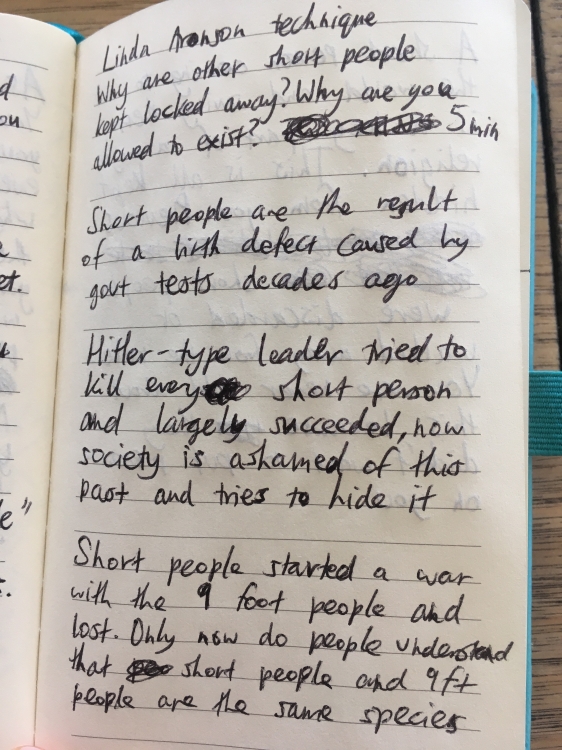 Linda Aronson technique
Why are other short people
kept locked away? Why are you
allowed to exist? 5 min
Short people are the result
of a birth defect caused by
govt tests decades ago
Hitler-type leader tried to
kill every short person
and largely succeeded, now
society is ashamed of this
past and tries to hide it
Short people started a war
with the 9 foot people and
lost. Only now do people understand
that short people and 9ft
people are the same species